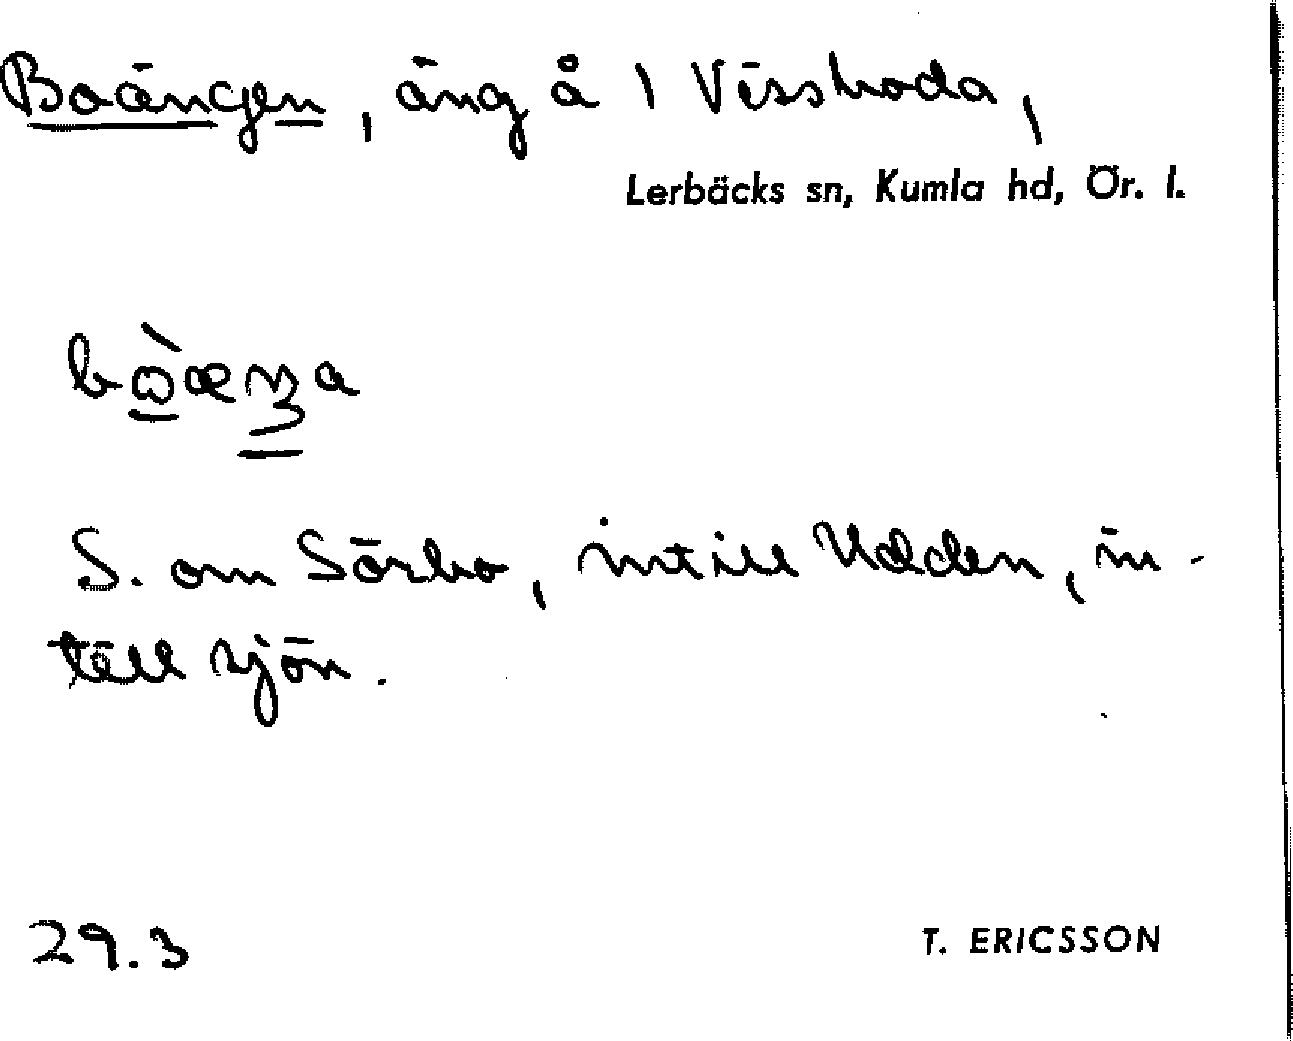 Boängen, äng å 1 Vissboda,
Lerbäcks sn, Kumla hd, Ör. l.
S. om Sörbo, intill Udden, in-
till sjön.
29.3
T. ERICSSON